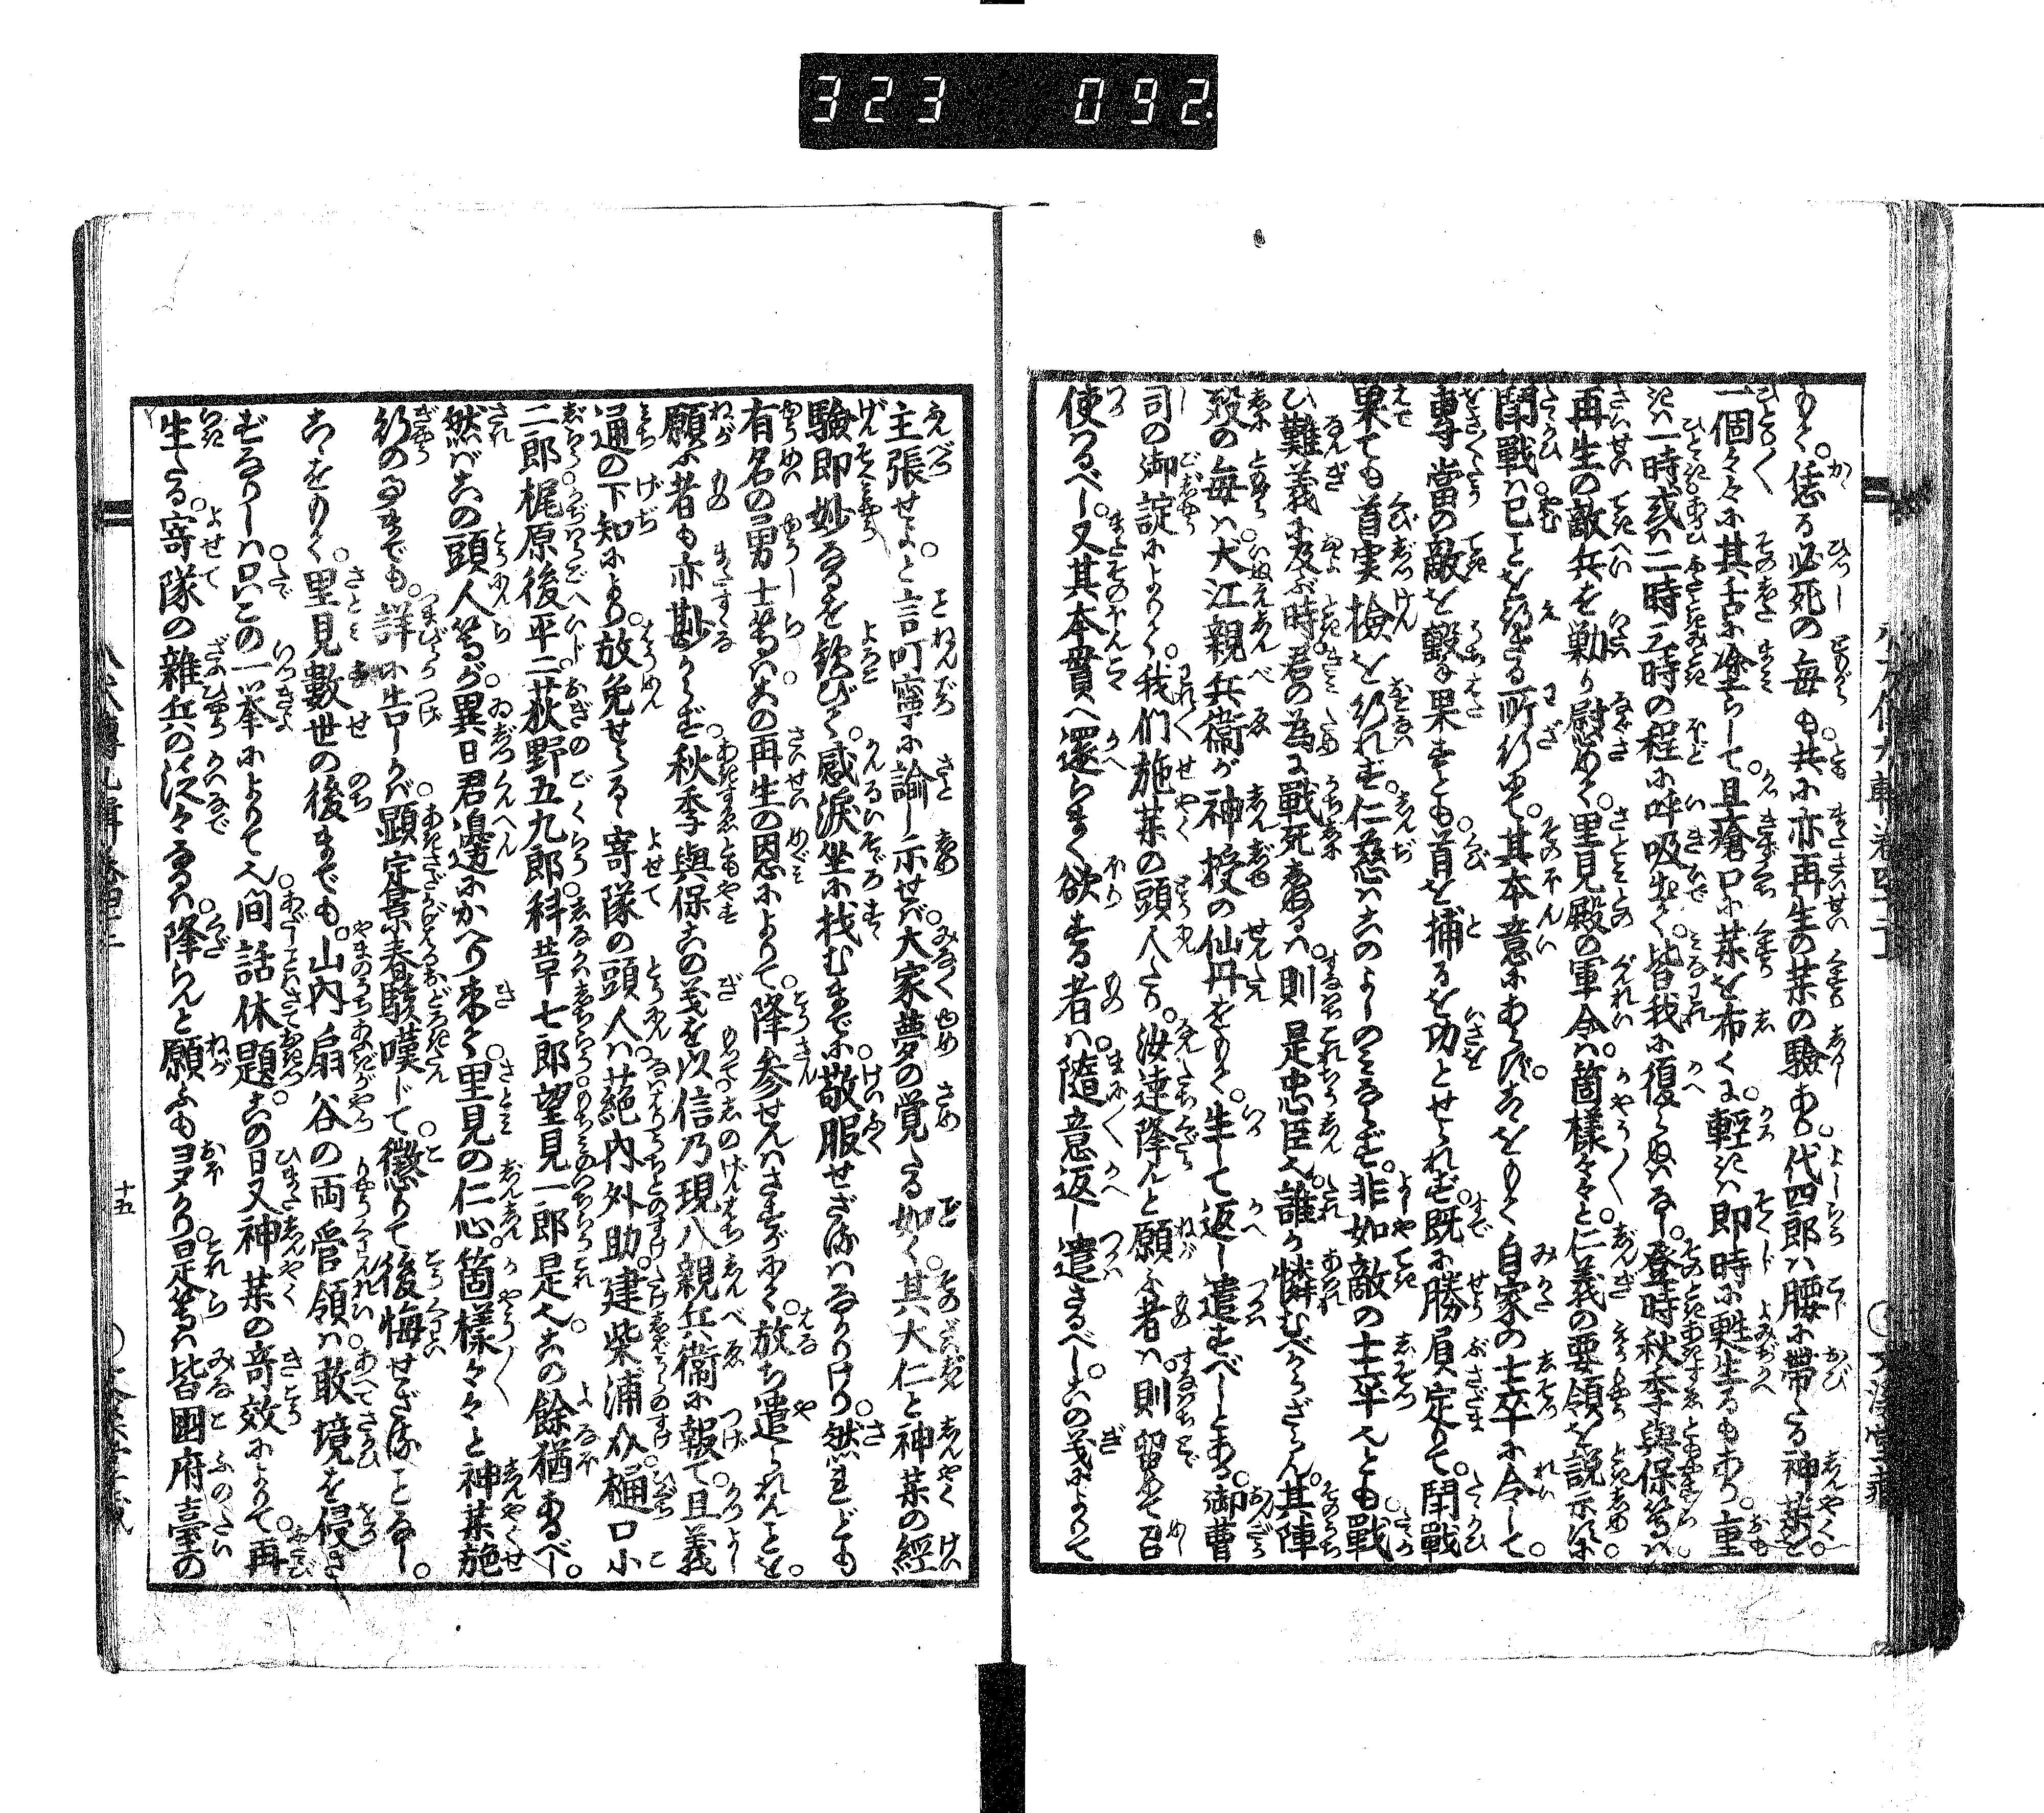 323 092.
もて。恁る必死の毎も。共に亦再生の薬の驗あり。代四郎は腰に帶たる神薬を。
一個々々に其舌に塗らして。且瘡口に薬を布くに。輕きは即時に甦生るもあり。重
きは一時或は二時三時の程に呼吸出て。皆我に復らぬはなし。登時秋季與保等は
再生の敵兵を勦り慰めて。里見殿の軍令は。箇樣々々と。仁義の要領を説示すに。
鬪戰は已ことを得ざる所行にて。其本意にあらず。こゝをもて自家の士卒に令して。
專當の敵を轂を果すとも。首を捕るを功とせられず。既に勝負定りて。鬪戰
果ても首実撿を行れず。仁慈はこのよしのみならず。非如敵の士卒也とも。戰
ひ難義に及ぶ時。君の為に戰死しぬるは。則是忠臣也。誰か憐むべからざらん。其陣
歿の毎は。犬江親兵衞が神授の仙丹をもて。生して返し遣すべしとある。御曹
司の御諚によりて。我們施薬の頭人たり。汝達降んと願ふ者は。則留めて召
使るべし。又其本貫へ還らまく欲する者は。隨意返し遣さるべし。この義によりて
主張せよ。と言叮嚀に諭し示せば。大家夢の覚たる如く。其大仁と神薬の經
驗即妙なるを歓びて。感涙坐に找むまでに。敬服せざるはなかりけり。然れども
有名の勇士等は。この再生の恩によりて。降參せんはさすがにて。放ち遣られんことを。
願ふ者も亦尠からず。秋季與保この義を以。信乃現八親兵衞に報て。且義
通の下知により。放免せらるゝ寄隊の頭人は。葩内外助。建柴浦介。樋口小
二郎。梶原後平二。荻野五九郎。科革七郎。望見一郎是也。この餘猶あるべし。
然ばこの頭人等が。異日君邊にかへり來て。里見の仁心。箇樣々々と。神薬施
行の事までも。詳に告しかば。顕定景春駭嘆じて。懲りて後悔せざるはことなし。
こゝをもて。里見數世の後までも。山内扇谷の両管領は。敢境を侵さ
ずなりしは。只この一挙によりて也。間話休題。この日又神薬の竒效によりて。再
生たる。寄隊の雜兵の許々なるは。降らんと願ふも多かり。是等は皆國府臺の
十五